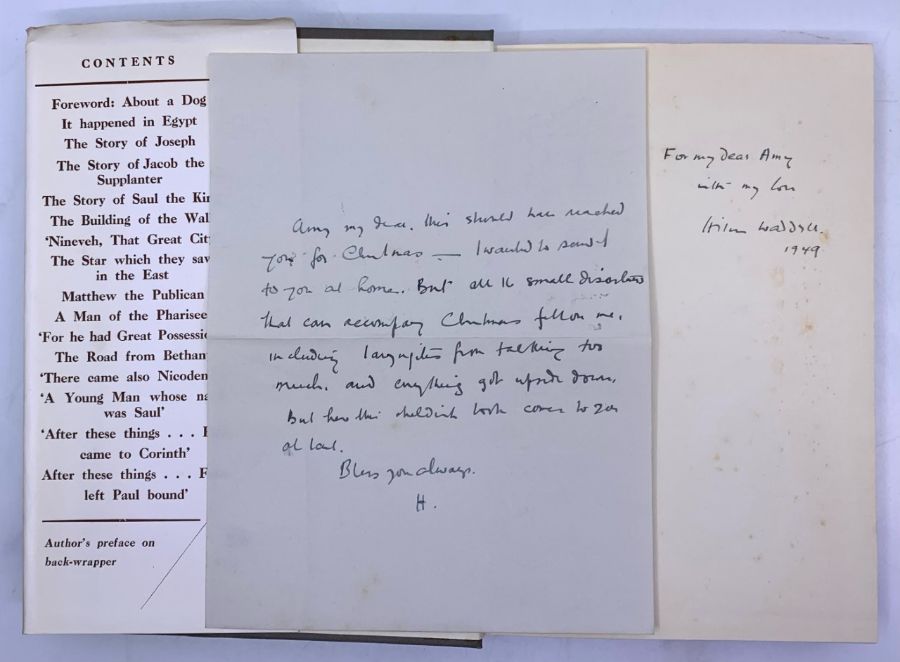 CONTENTS
Foreword: About a Dog
It happened in Egypt
The Story of Joseph
The Story of Jacob the
Supplanter
The Story of Saul the Kin
The Building of the Wal
'Nineveh, That Great Cit
The Star which they saw
in the East
Matthew the Publican
A Man of the Pharisee
'For he had Great Possessio
The Road from Bethan
'There came also Nicodem
'A Young Man whose na
was Saul'
'After these things . . . P
came to Corinth'
After these things . . . F
left Paul bound'
Author's preface on
back-wrapper
Amy my dear. this should have reached
you for Christmas — I wanted to send it
to you at home. But all the small disasters
that can accompany Christmas fell on me,
including laryngitis from talking too
much, and everything got upside down.
But here this childish book comes to you
at last.
Bless you always.
H.
For my dear Amy
with my love
Helen Waddell.
1949